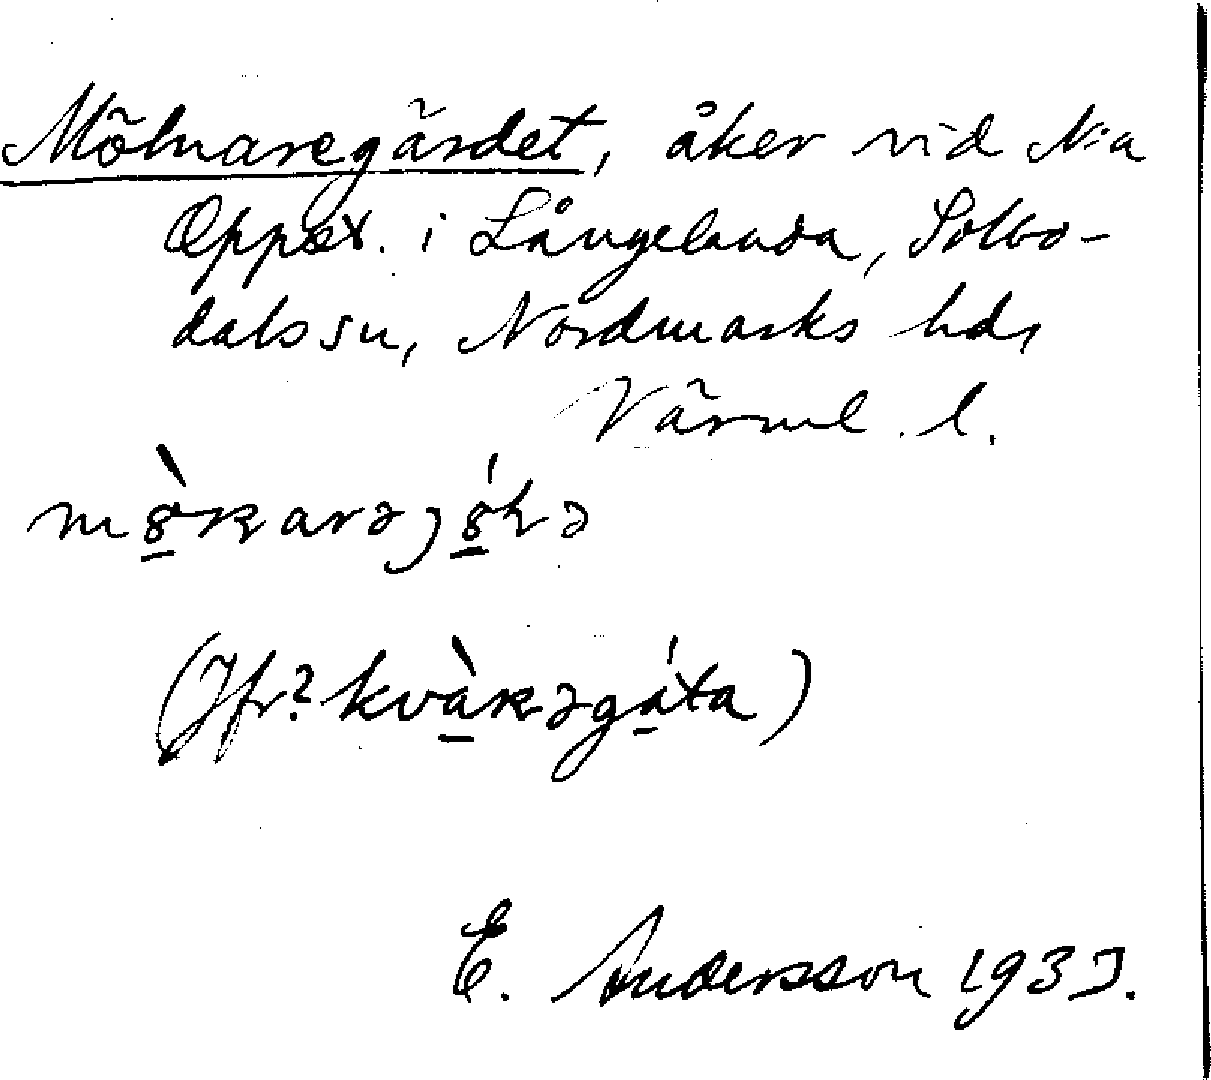 Mölnaregärdet, åker vid N:a
Öppst. i Långelanda, Sillbo-
dals sn, Nordmarks hd,
Värml. l.
(Jfr? kvàkəgáta)
E. Andersson 1933.